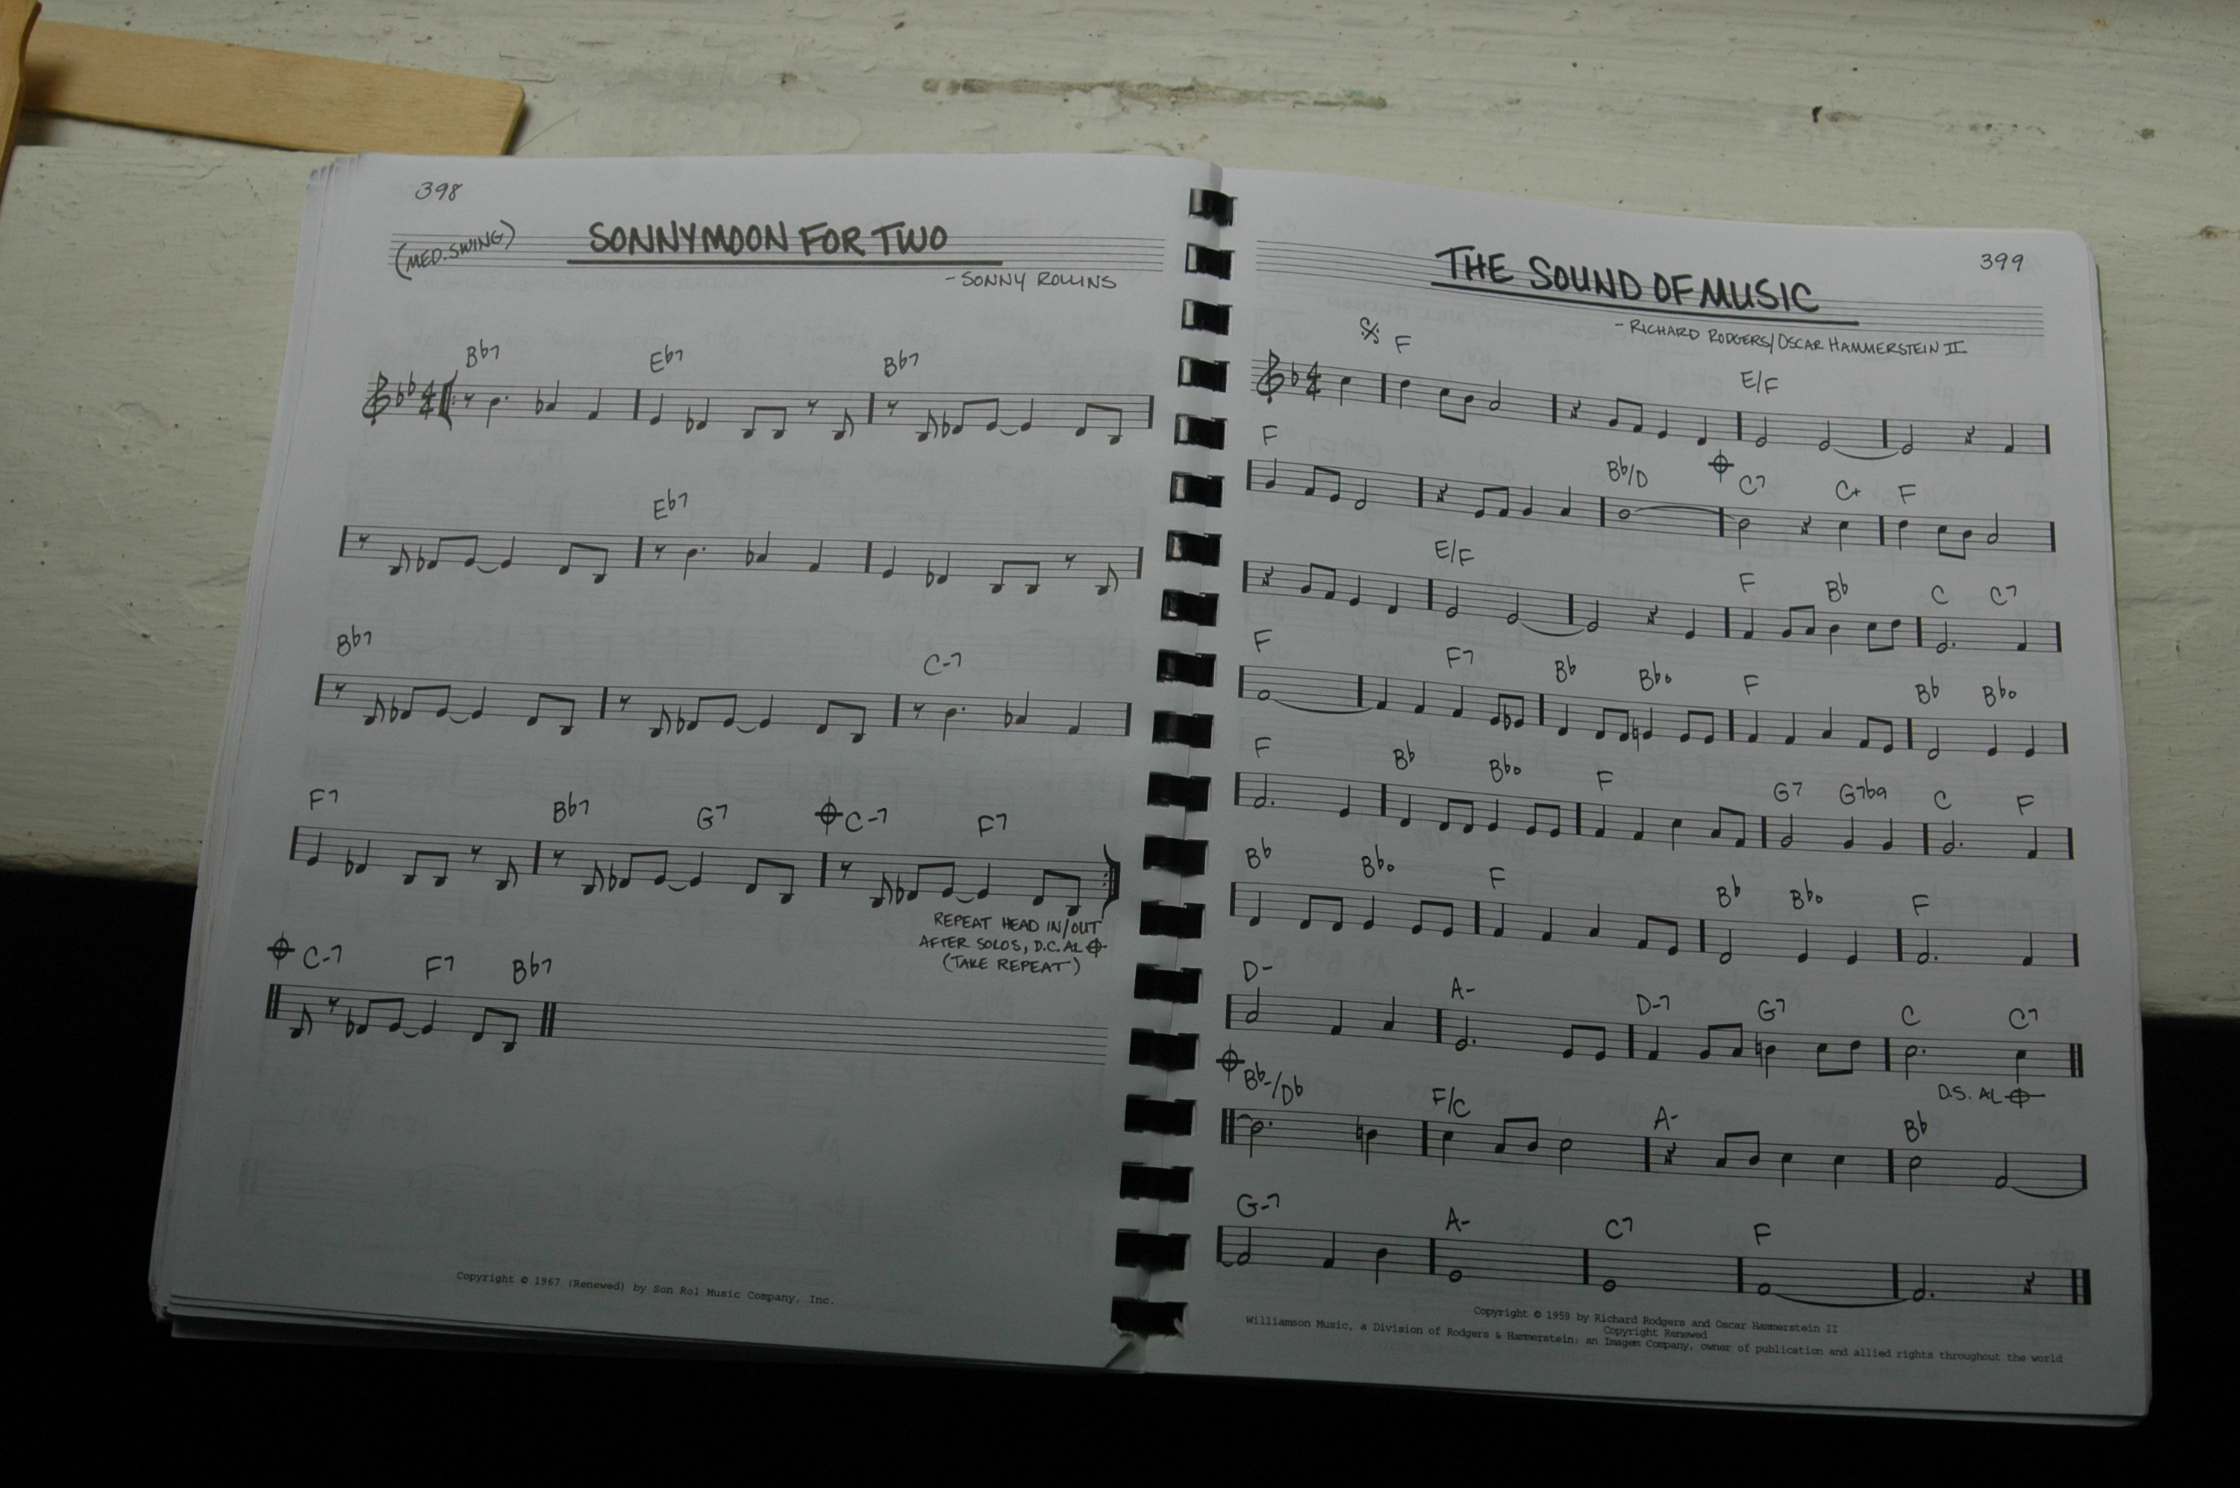 398
(MED. SWING)
SONNYMOON FOR TWO
- SONNY ROLLINS
Bb7 Eb7 Bb7
Eb7
Bb7 C-7
F7 Bb7 G7 C-7 F7
REPEAT HEAD IN/OUT
AFTER SOLOS, D.C. AL
(TAKE REPEAT)
C-7 F7 Bb7
Copyright © 1967 (Renewed) by Son Rol Music Company, Inc.
399
THE SOUND OF MUSIC
- RICHARD RODGERS/OSCAR HAMMERSTEIN II
F E/F
F Bb/D C7 C+ F
E/F F Bb C C7
F F7 Bb Bbo F Bb Bbo
F Bb Bbo F G7 G7b9 C F
Bb Bbo F Bb Bbo F
D- A- D-7 G7 C C7
D.S. AL
Bb-/Db F/C A- Bb
G-7 A- C7 F
Copyright © 1959 by Richard Rodgers and Oscar Hammerstein II
Copyright Renewed
Williamson Music, a Division of Rodgers & Hammerstein: an Imagem Company, owner of publication and allied rights throughout the world